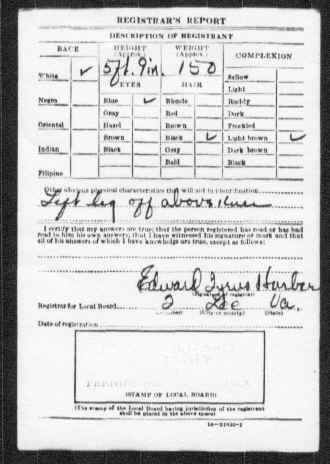 REGISTRAR'S REPORT
DESCRIPTION OF REGISTRANT
RACE HEIGHT (Approx.) WEIGHT (Approx.) COMPLEXION
White ✓ 5 ft. 9 in. 150 Sallow
EYES HAIR Light
Negro Blue ✓ Blonde Ruddy
Gray Red Dark
Oriental Hazel Brown Freckled
Brown Black ✓ Light brown ✓
Indian Black Gray Dark brown
Bald Black
Filipino
Other obvious physical characteristics that will aid in identification
Left leg off above knee
I certify that my answers are true; that the person registered has read or has had
read to him his own answers; that I have witnessed his signature or mark and that
all of his answers of which I have knowledge are true, except as follows:
Edward Harber
(Signature of registrar)
Registrar for Local Board 2 Lee Va.
(Number) (City or county) (State)
Date of registration
(STAMP OF LOCAL BOARD)
(The stamp of the Local Board having jurisdiction of the registrant
shall be placed in the above space)